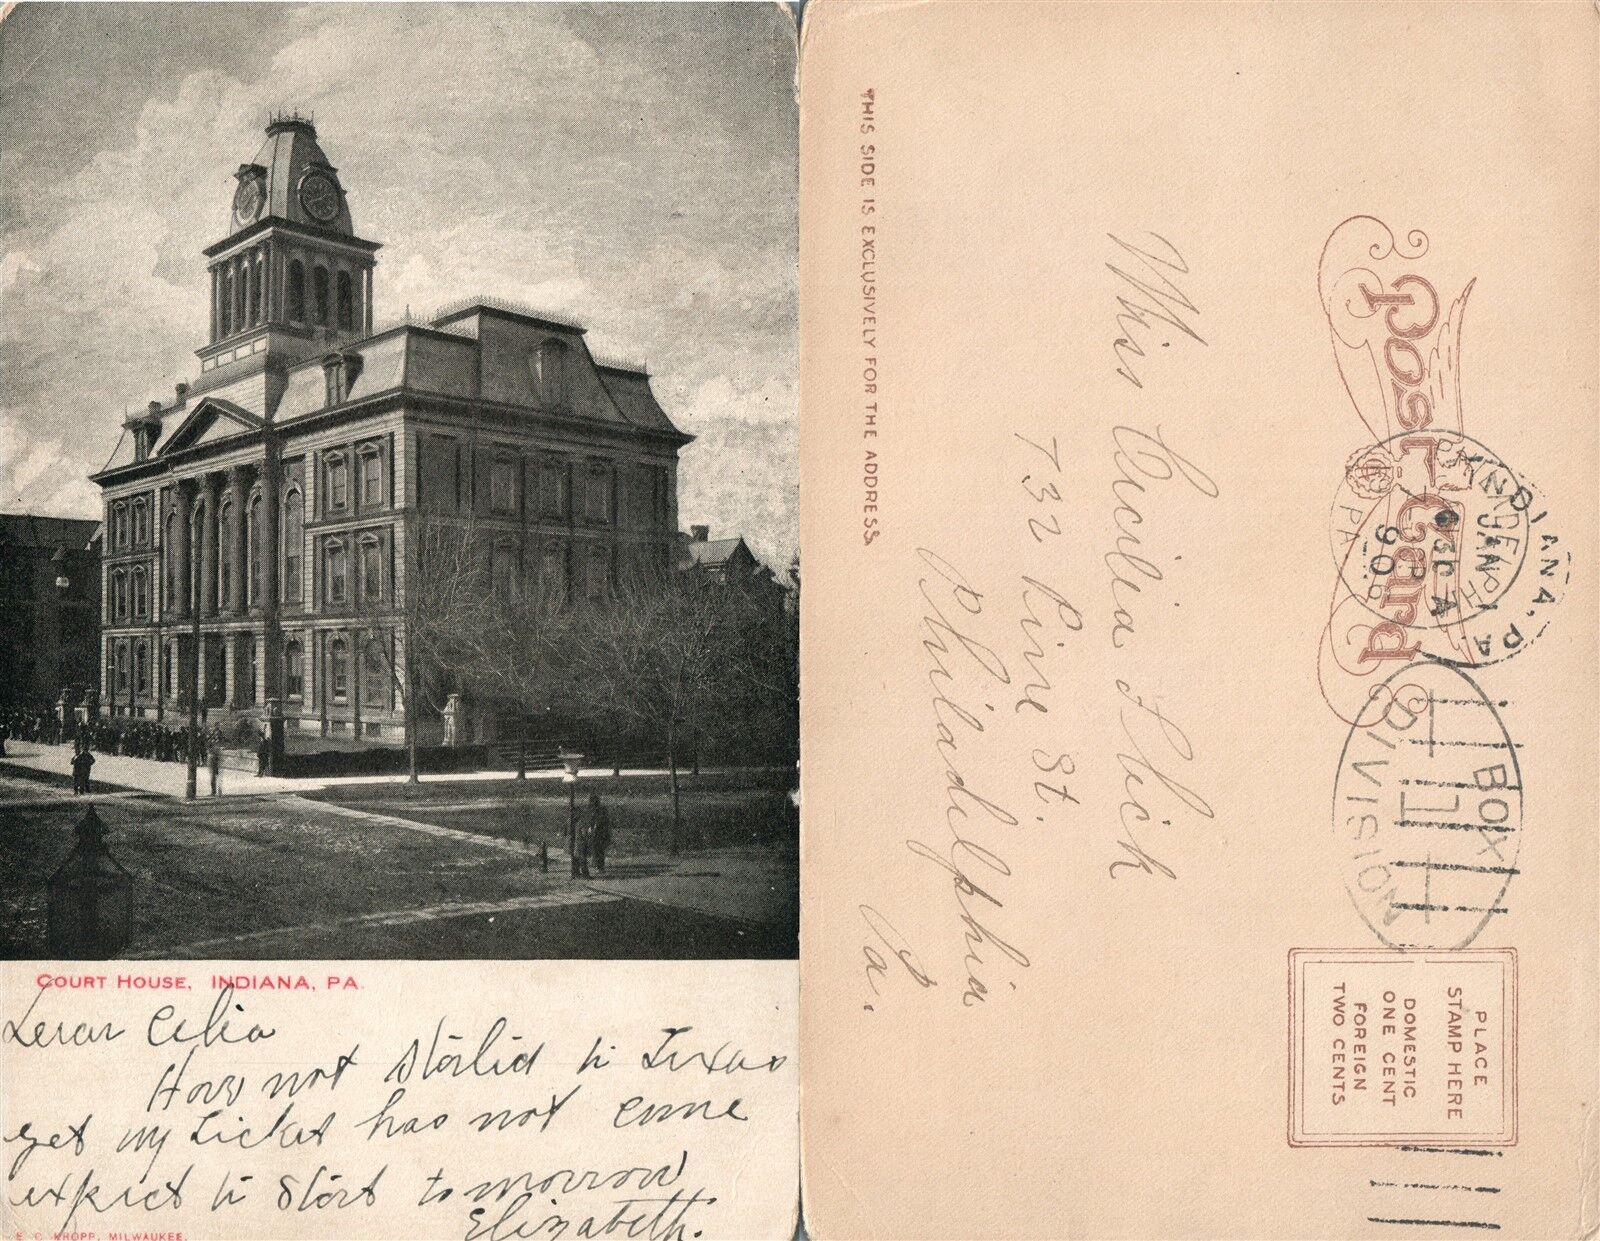 COURT HOUSE, INDIANA, PA.
Dear Celia
Have not started to Texas
yet my ticket has not come
expect to start tomorrow
Elizabeth.
E. C. KROPP, MILWAUKEE.
THIS SIDE IS EXCLUSIVELY FOR THE ADDRESS.
Post Card
PLACE
STAMP HERE
DOMESTIC
ONE CENT
FOREIGN
TWO CENTS
INDIANA, PA.
JAN
630 A
PA.
BOX
DIVISION
Miss Cecilia Slick
732 Pine St.
Philadelphia
Pa.